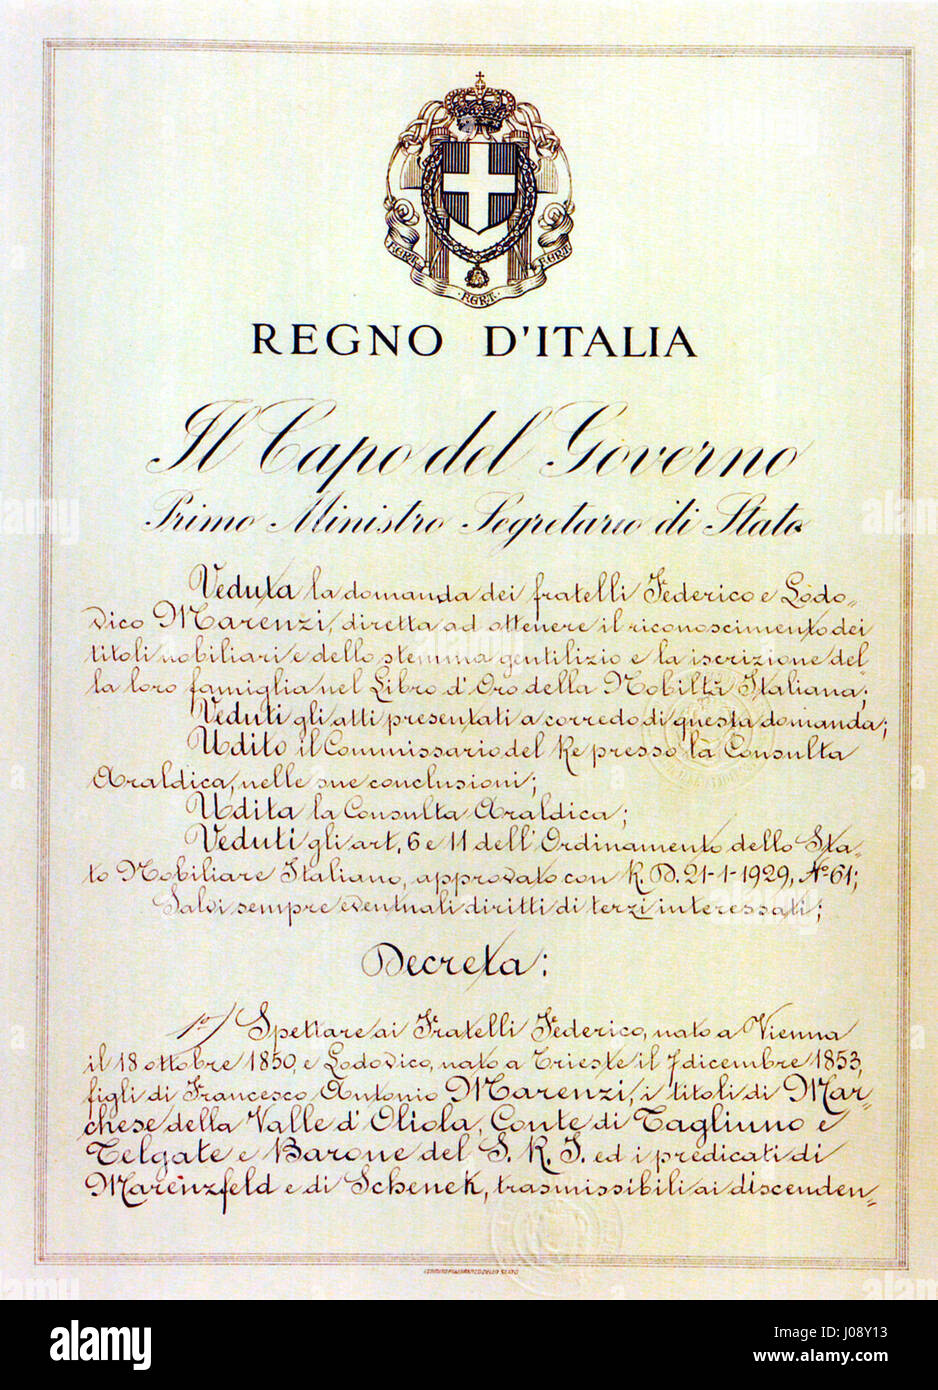 F.E.R.T.
F.E.R.T.
F.E.R.T.
REGNO D'ITALIA
Il Capo del Governo
Primo Ministro Segretario di Stato
Veduta la domanda dei fratelli Federico e Lodo-
vico Marenzi, diretta ad ottenere il riconoscimento dei
titoli nobiliari e dello stemma gentilizio e la iscrizione del
la loro famiglia nel Libro d'Oro della Nobiltà Italiana;
Veduti gli atti presentati a corredo di questa domanda;
Udito il Commissario del Re presso la Consulta
Araldica, nelle sue conclusioni;
Udita la Consulta Araldica;
Veduti gli art. 6 e 11 dell'Ordinamento dello Sta-
to Nobiliare Italiano, approvato con R. D. 21-1-1929, N° 61;
Salvi sempre eventuali diritti di terzi interessati;
Decreta:
1°) Spettare ai Fratelli Federico, nato a Vienna
il 18 ottobre 1850, e Lodovico, nato a Trieste il 7 dicembre 1853,
figli di Francesco Antonio Marenzi, i titoli di Mar-
chese della Valle d'Oliola, Conte di Tagliuno e
Telgate e Barone del S. R. I. ed i predicati di
Marenzfeld e di Scheneck, trasmissibili ai discenden-
alamy
Image ID: J08Y13
www.alamy.com